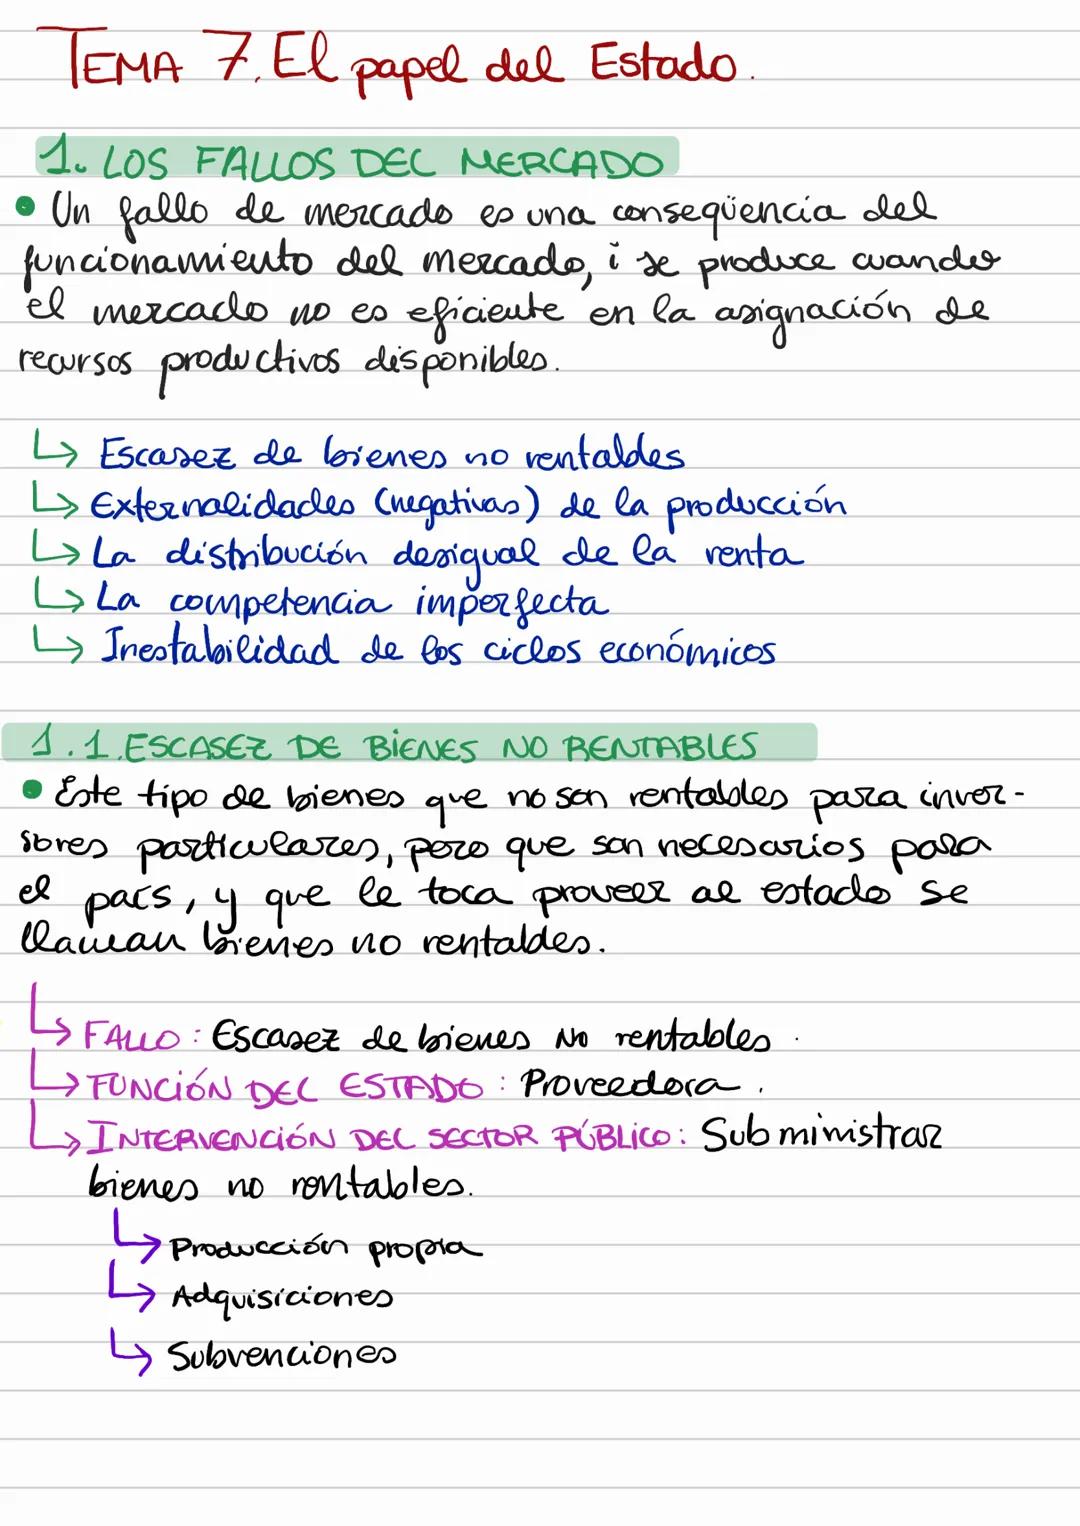 TEMA 7. El papel del Estado.
1. LOS FALLOS DEL MERCADO
• Un fallo de mercado es una conseqüencia del
funcionamiento del mercado, i se produce cuando
el mercado no es eficiente en la asignación de
recursos productivos disponibles.
↳ Escasez de bienes no rentables
↳ Externalidades (negativas) de la producción
↳ La distribución desigual de la renta
↳ La competencia imperfecta
↳ Inestabilidad de los ciclos económicos
1.1. ESCASEZ DE BIENES NO RENTABLES
• Este tipo de bienes que no son rentables para inver-
sores particulares, pero que son necesarios para
el país, y que le toca proveer al estado se
llaman bienes no rentables.
↳ FALLO: Escasez de bienes NO rentables.
↳ FUNCIÓN DEL ESTADO: Proveedora.
↳ INTERVENCIÓN DEL SECTOR PÚBLICO: Subministrar
bienes no rentables.
↳ Producción propia
↳ Adquisiciones
↳ Subvenciones